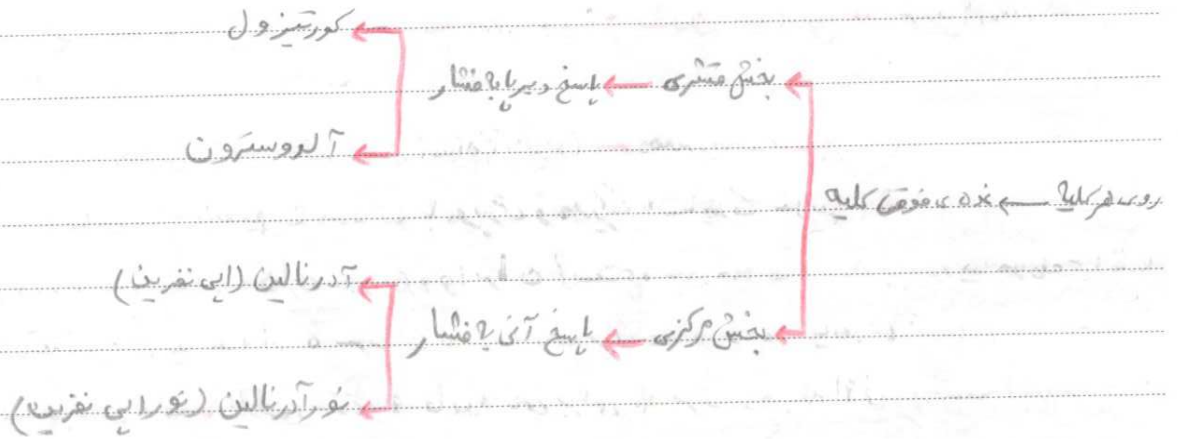 روی هر کلیه ← غده ی فوقی کلیه
بخش قشری ← پاسخ دیرپا به فشار
کورتیزول
آلدوسترون
بخش مرکزی ← پاسخ آنی به فشار
آدرنالین (اپی نفرین)
نورآدرنالین (نوراپی نفرین)